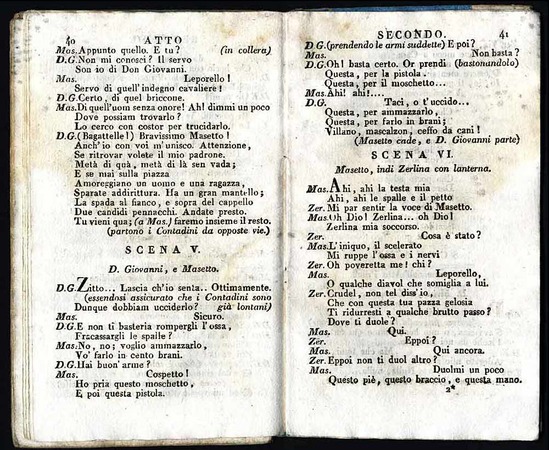 40 ATTO
Mas. Appunto quello. E tu? (in collera)
D.G. Non mi conosci? Il servo
Son io di Don Giovanni.
Mas. Leporello!
Servo di quell'indegno cavaliere!
D.G. Certo, di quel briccone.
Mas. Di quell'uom senza onore! Ah! dimmi un poco
Dove possiam trovarlo?
Lo cerco con costor per trucidarlo.
D.G. (Bagattelle!) Bravissimo Masetto!
Anch'io con voi m'unisco. Attenzione,
Se ritrovar volete il mio padrone.
Metà di quà, metà di là sen vada;
E se mai sulla piazza
Amoreggiano un uomo e una ragazza,
Sparate addirittura. Ha un gran mantello;
La spada al fianco, e sopra del cappello
Due candidi pennacchi. Andate presto.
Tu vieni qua; (a Mas.) faremo insieme il resto.
(partono i Contadini da opposte vie.)
SCENA V.
D. Giovanni, e Masetto.
D.G. Zitto... Lascia ch'io senta.. Ottimamente.
(essendosi assicurato che i Contadini sono
Dunque dobbiam ucciderlo? già lontani)
Mas. Sicuro.
D.G. E non ti basteria rompergli l'ossa,
Fracassargli le spalle?
Mas. No, no; voglio ammazzarlo,
Vo' farlo in cento brani.
D.G. Hai buon'arme?
Mas. Cospetto!
Ho pria questo moschetto,
E poi questa pistola.
SECONDO. 41
D G. (prendendo le armi suddette) E poi?
Mas. Non basta?
D.G. Oh! basta certo. Or prendi (bastonandolo)
Questa, per la pistola.
Questa, per il moschetto...
Mas. Ahi! ahi!....
D.G. Taci, o t'uccido...
Questa, per ammazzarlo,
Questa, per farlo in brani;
Villano, mascalzon, ceffo da cani!
(Masetto cade, e D. Giovanni parte)
SCENA VI.
Masetto, indi Zerlina con lanterna.
Mas. Ahi, ahi la testa mia
Ahi, ahi le spalle e il petto
Zer. Mi par sentir la voce di Masetto.
Mas. Oh Dio! Zerlina... oh Dio!
Zerlina mia soccorso.
Zer. Cosa è stato?
Mas. L'iniquo, il scelerato
Mi ruppe l'ossa e i nervi
Zer. Oh poveretta me! chi?
Mas. Leporello,
O qualche diavol che somiglia a lui.
Zer. Crudel, non tel diss'io,
Che con questa tua pazza gelosia
Ti ridurresti a qualche brutto passo?
Dove ti duole?
Mas. Qui.
Zer. Eppoi?
Mas. Qui ancora.
Zer. Eppoi non ti duol altro?
Mas. Duolmi un poco
Questo piè, questo braccio, e questa mano.
2*